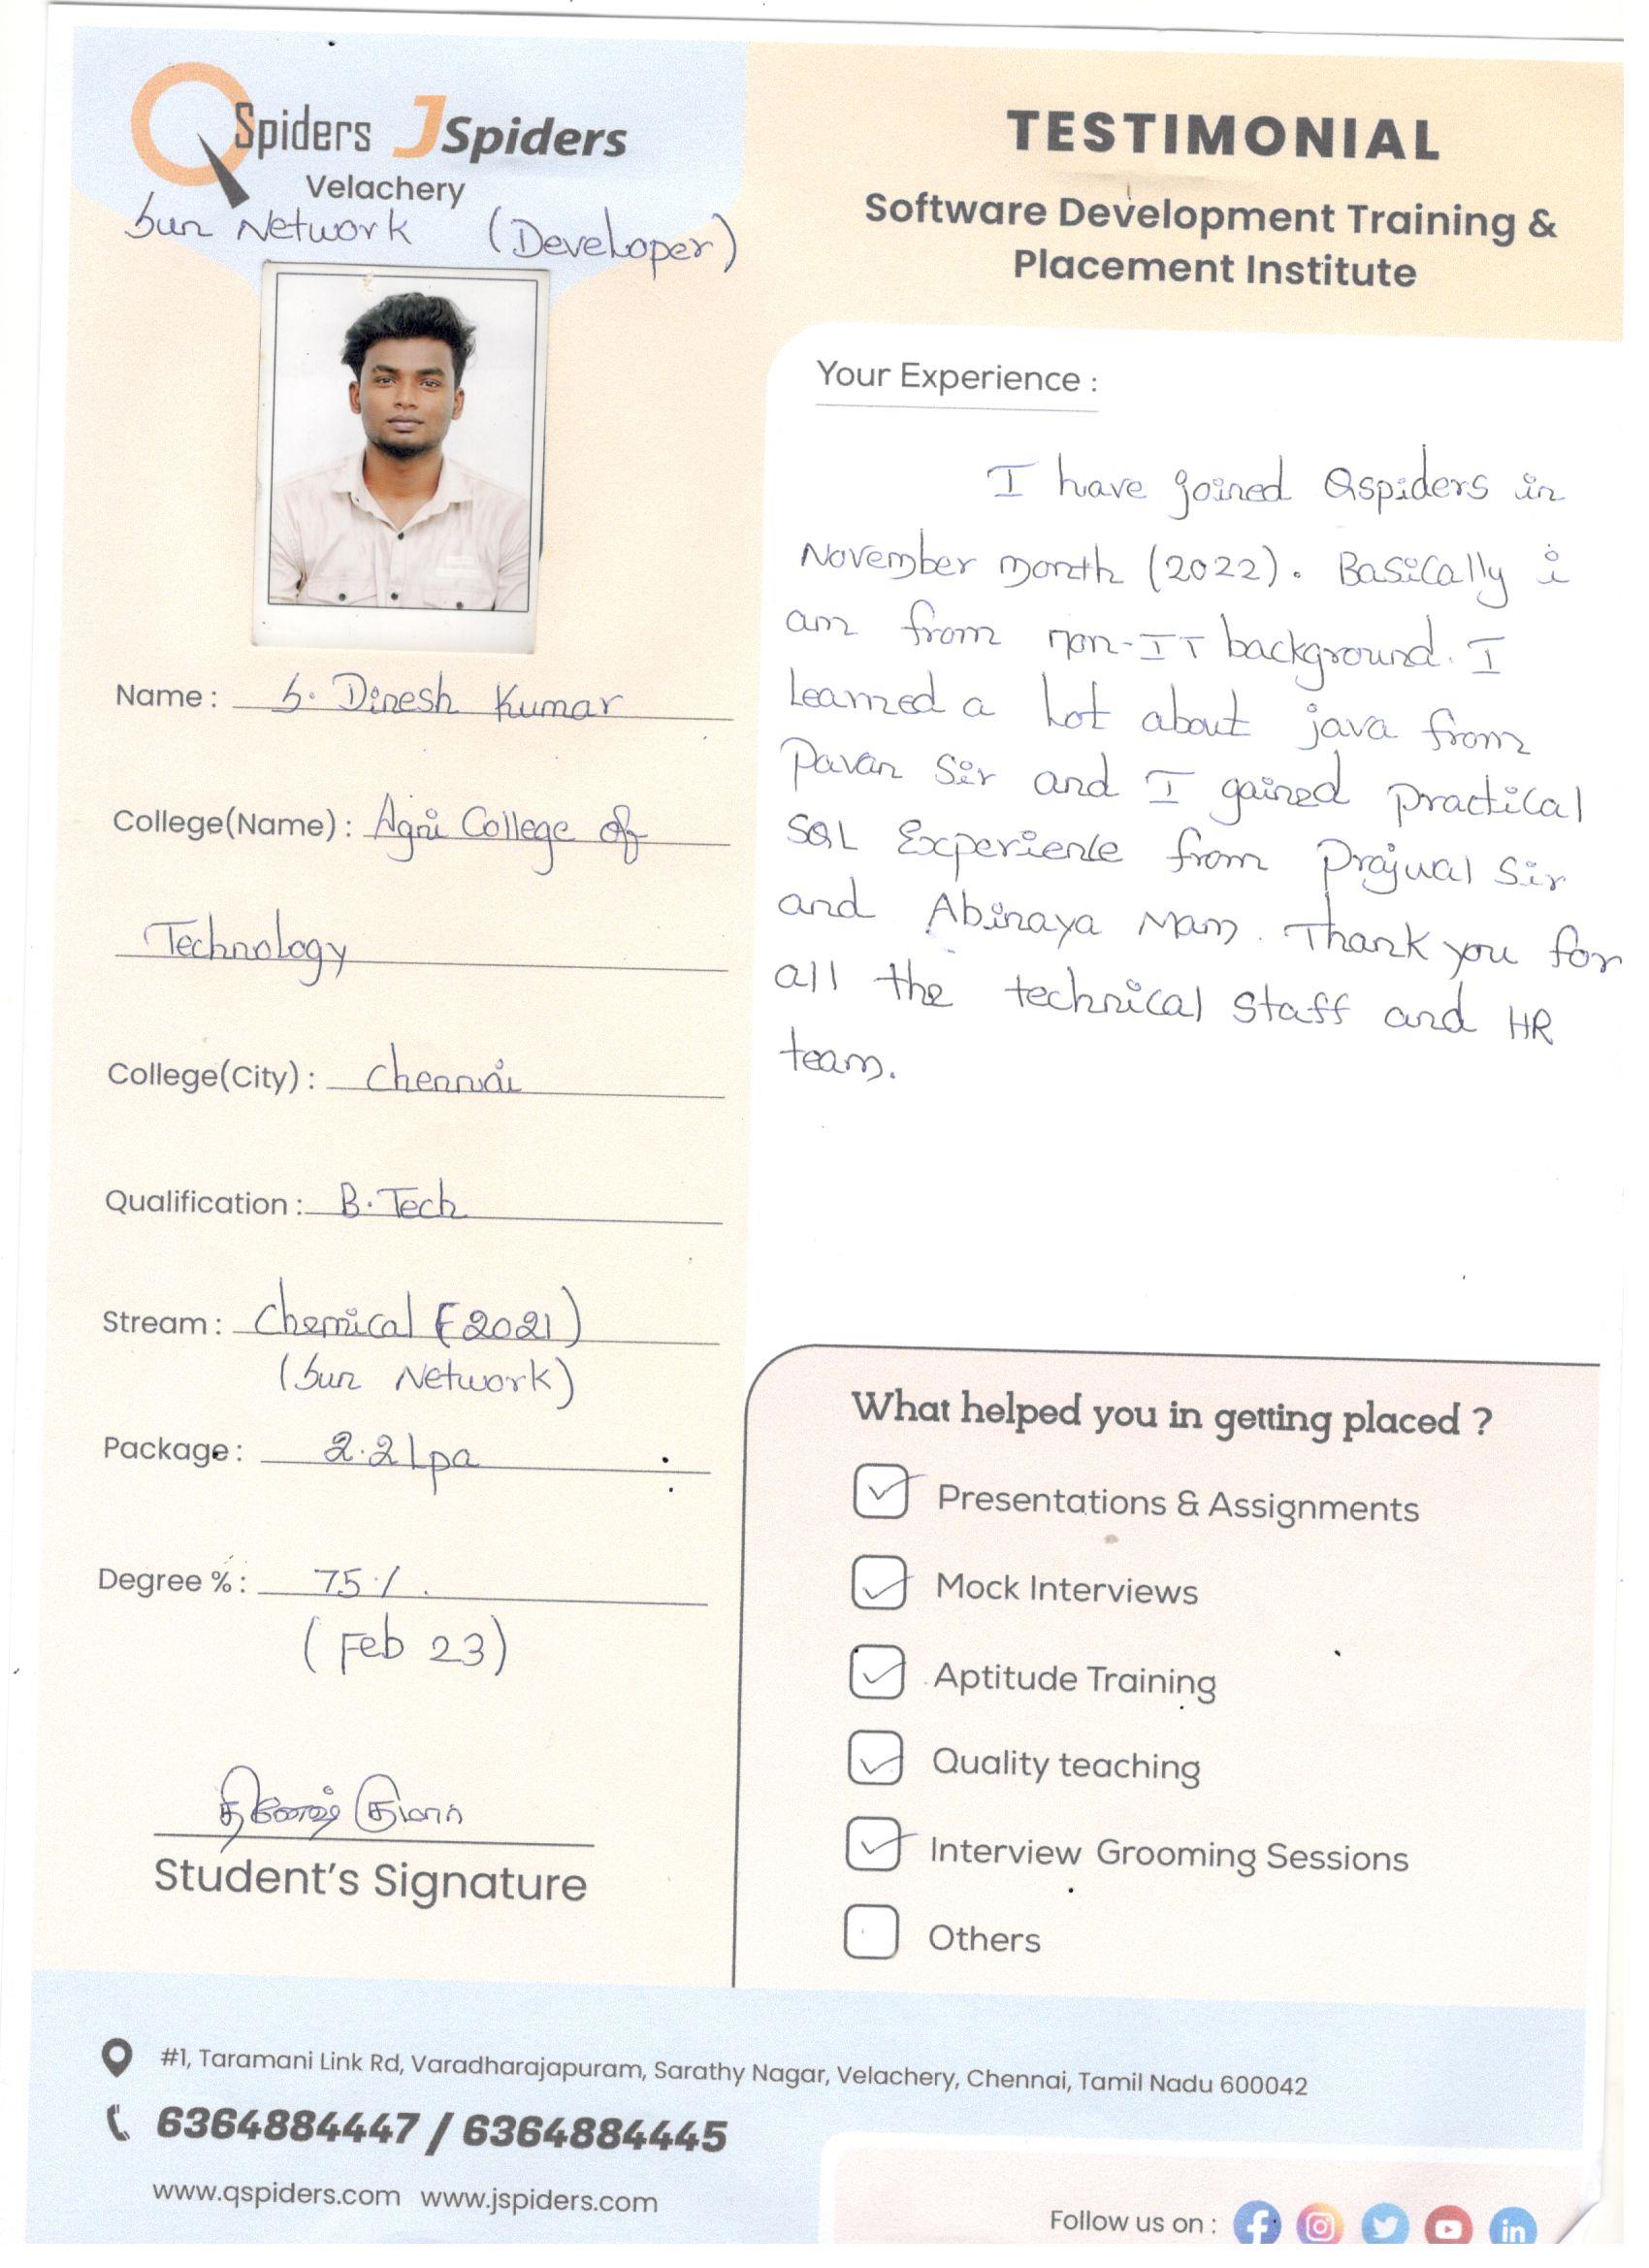 QSpiders JSpiders
Velachery
Sun Network (Developer)
TESTIMONIAL
Software Development Training &
Placement Institute
Name : S. Dinesh Kumar
College(Name) : Agni College of
Technology
College(City) : Chennai
Qualification : B.Tech
Stream : Chemical (2021)
(Sun Network)
Package : 2.2 Lpa
Degree % : 75 %.
(Feb 23)
தினேஷ் குமார்
Student's Signature
Your Experience :
I have joined Qspiders in
November month (2022). Basically i
am from non-IT background. I
Learned a Lot about java from
Pavan Sir and I gained practical
SQL Experience from Prajual Sir
and Abinaya Mam. Thank you for
all the technical staff and HR
team.
What helped you in getting placed ?
Presentations & Assignments
Mock Interviews
Aptitude Training
Quality teaching
Interview Grooming Sessions
Others
#1, Taramani Link Rd, Varadharajapuram, Sarathy Nagar, Velachery, Chennai, Tamil Nadu 600042
6364884447 / 6364884445
www.qspiders.com www.jspiders.com
Follow us on :